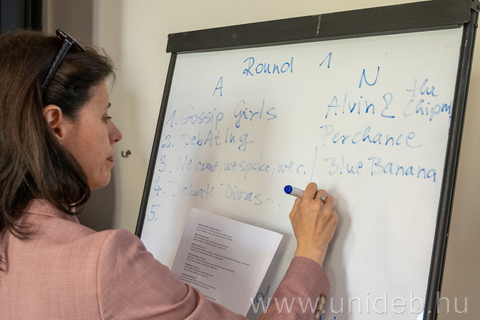 Round 1
A N
1. Gossip Girls Alvin & the Chipom
2. DebAting Perchance
3. We came, we spoke, we c. Blue Banana
4. Debate Divas -.
5.
www.unideb.hu